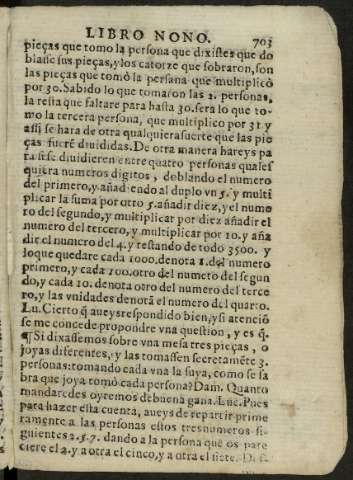 LIBRO NONO. 703
pieças que tomo la persona que dixistes que do
blasse sus pieças, y los catorze que sobraron, son
las pieças que tomò la persona que multiplicò
por 30. Sabido lo que tomaron las 2. personas,
la resta que faltare para hasta 30. sera lo que to-
mo la tercera persona, que multiplico por 31. y
assi se hara de otra qualquiera suerte que las pie
ças fuerē diuididas. De otra manera hareys pa
ra si se diuidieren entre quatro personas quales
quiera numeros digitos, doblando el numero
del primero, y añadiendo al duplo vn 5. y multi
plicar la suma por otro 5. añadir diez, y el nume
ro del segundo, y multiplicar por diez añadir el
numero del tercero, y multiplicar por 10. y aña
dir el numero del 4. y restando de todo 3500. y
lo que quedare cada 1000. denota 1. del numero
primero, y cada 100. otro del numero del segun
do, y cada 10. denota otro del numero del terce
ro, y las vnidades denotā el numero del quarto.
Lu. Cierto q̄ aueys respondido bien, y si atenció
se me concede propondre vna question, y es q̄.
¶ Si dixassemos sobre vna mesa tres pieças, o
joyas diferentes, y las tomassen secretamēte 3.
personas: tomando cada vna la suya, como se sa
bra que joya tomò cada persona? Dam. Quanto
mandaredes oyremos de buena gana. Luc. Pues
para hazer esta cuenta, aueys de repartir prime
ramente a las personas estos tres numeros si-
guientes 2. 5. 7. dando a la persona que os pare
ciere el 2. y a otra el cinco, y a otra el siete.